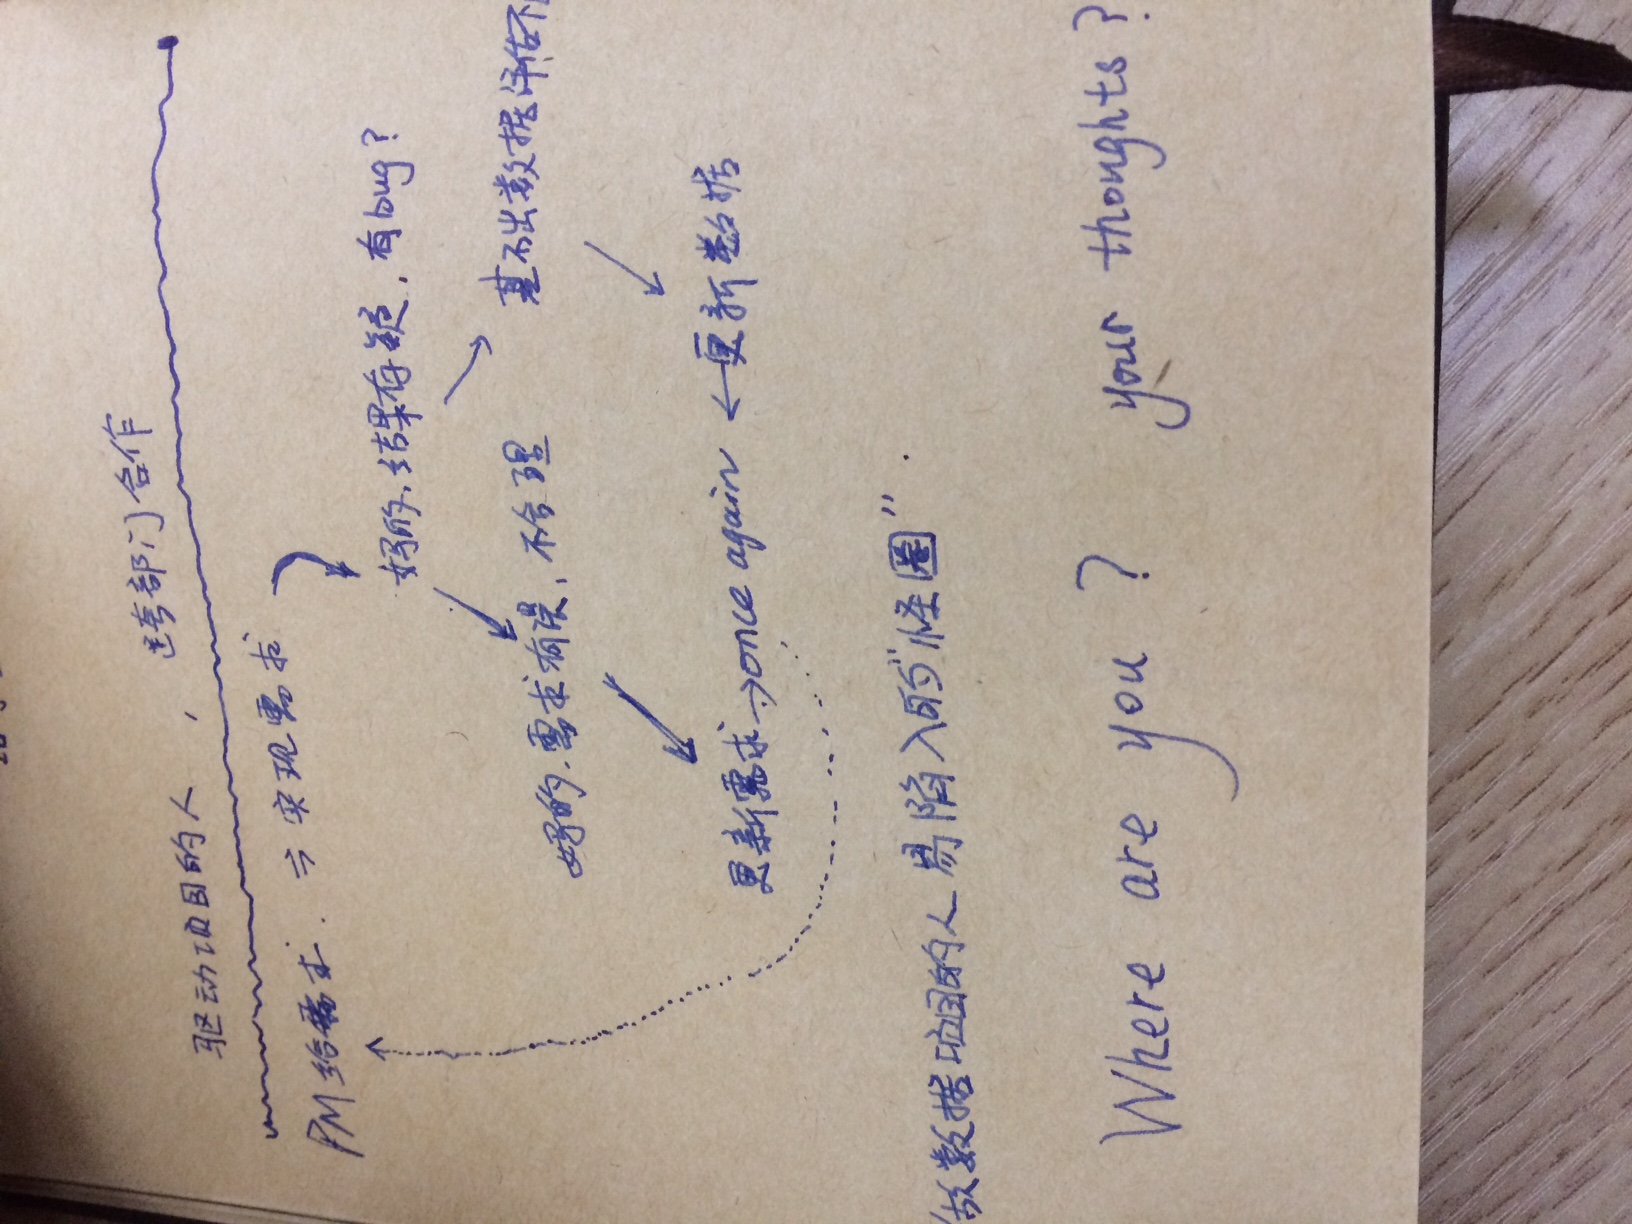 驱动项目的人 , 跨部门合作
PM给需求. ⇒ 实现需求
好的,结果存疑,有bug?
好的.需求有误,不合理
基础数据评估不
更新需求→once again ← 更新数据
做数据项目的人易陷入的"怪圈".
Where are you ? your thoughts ?